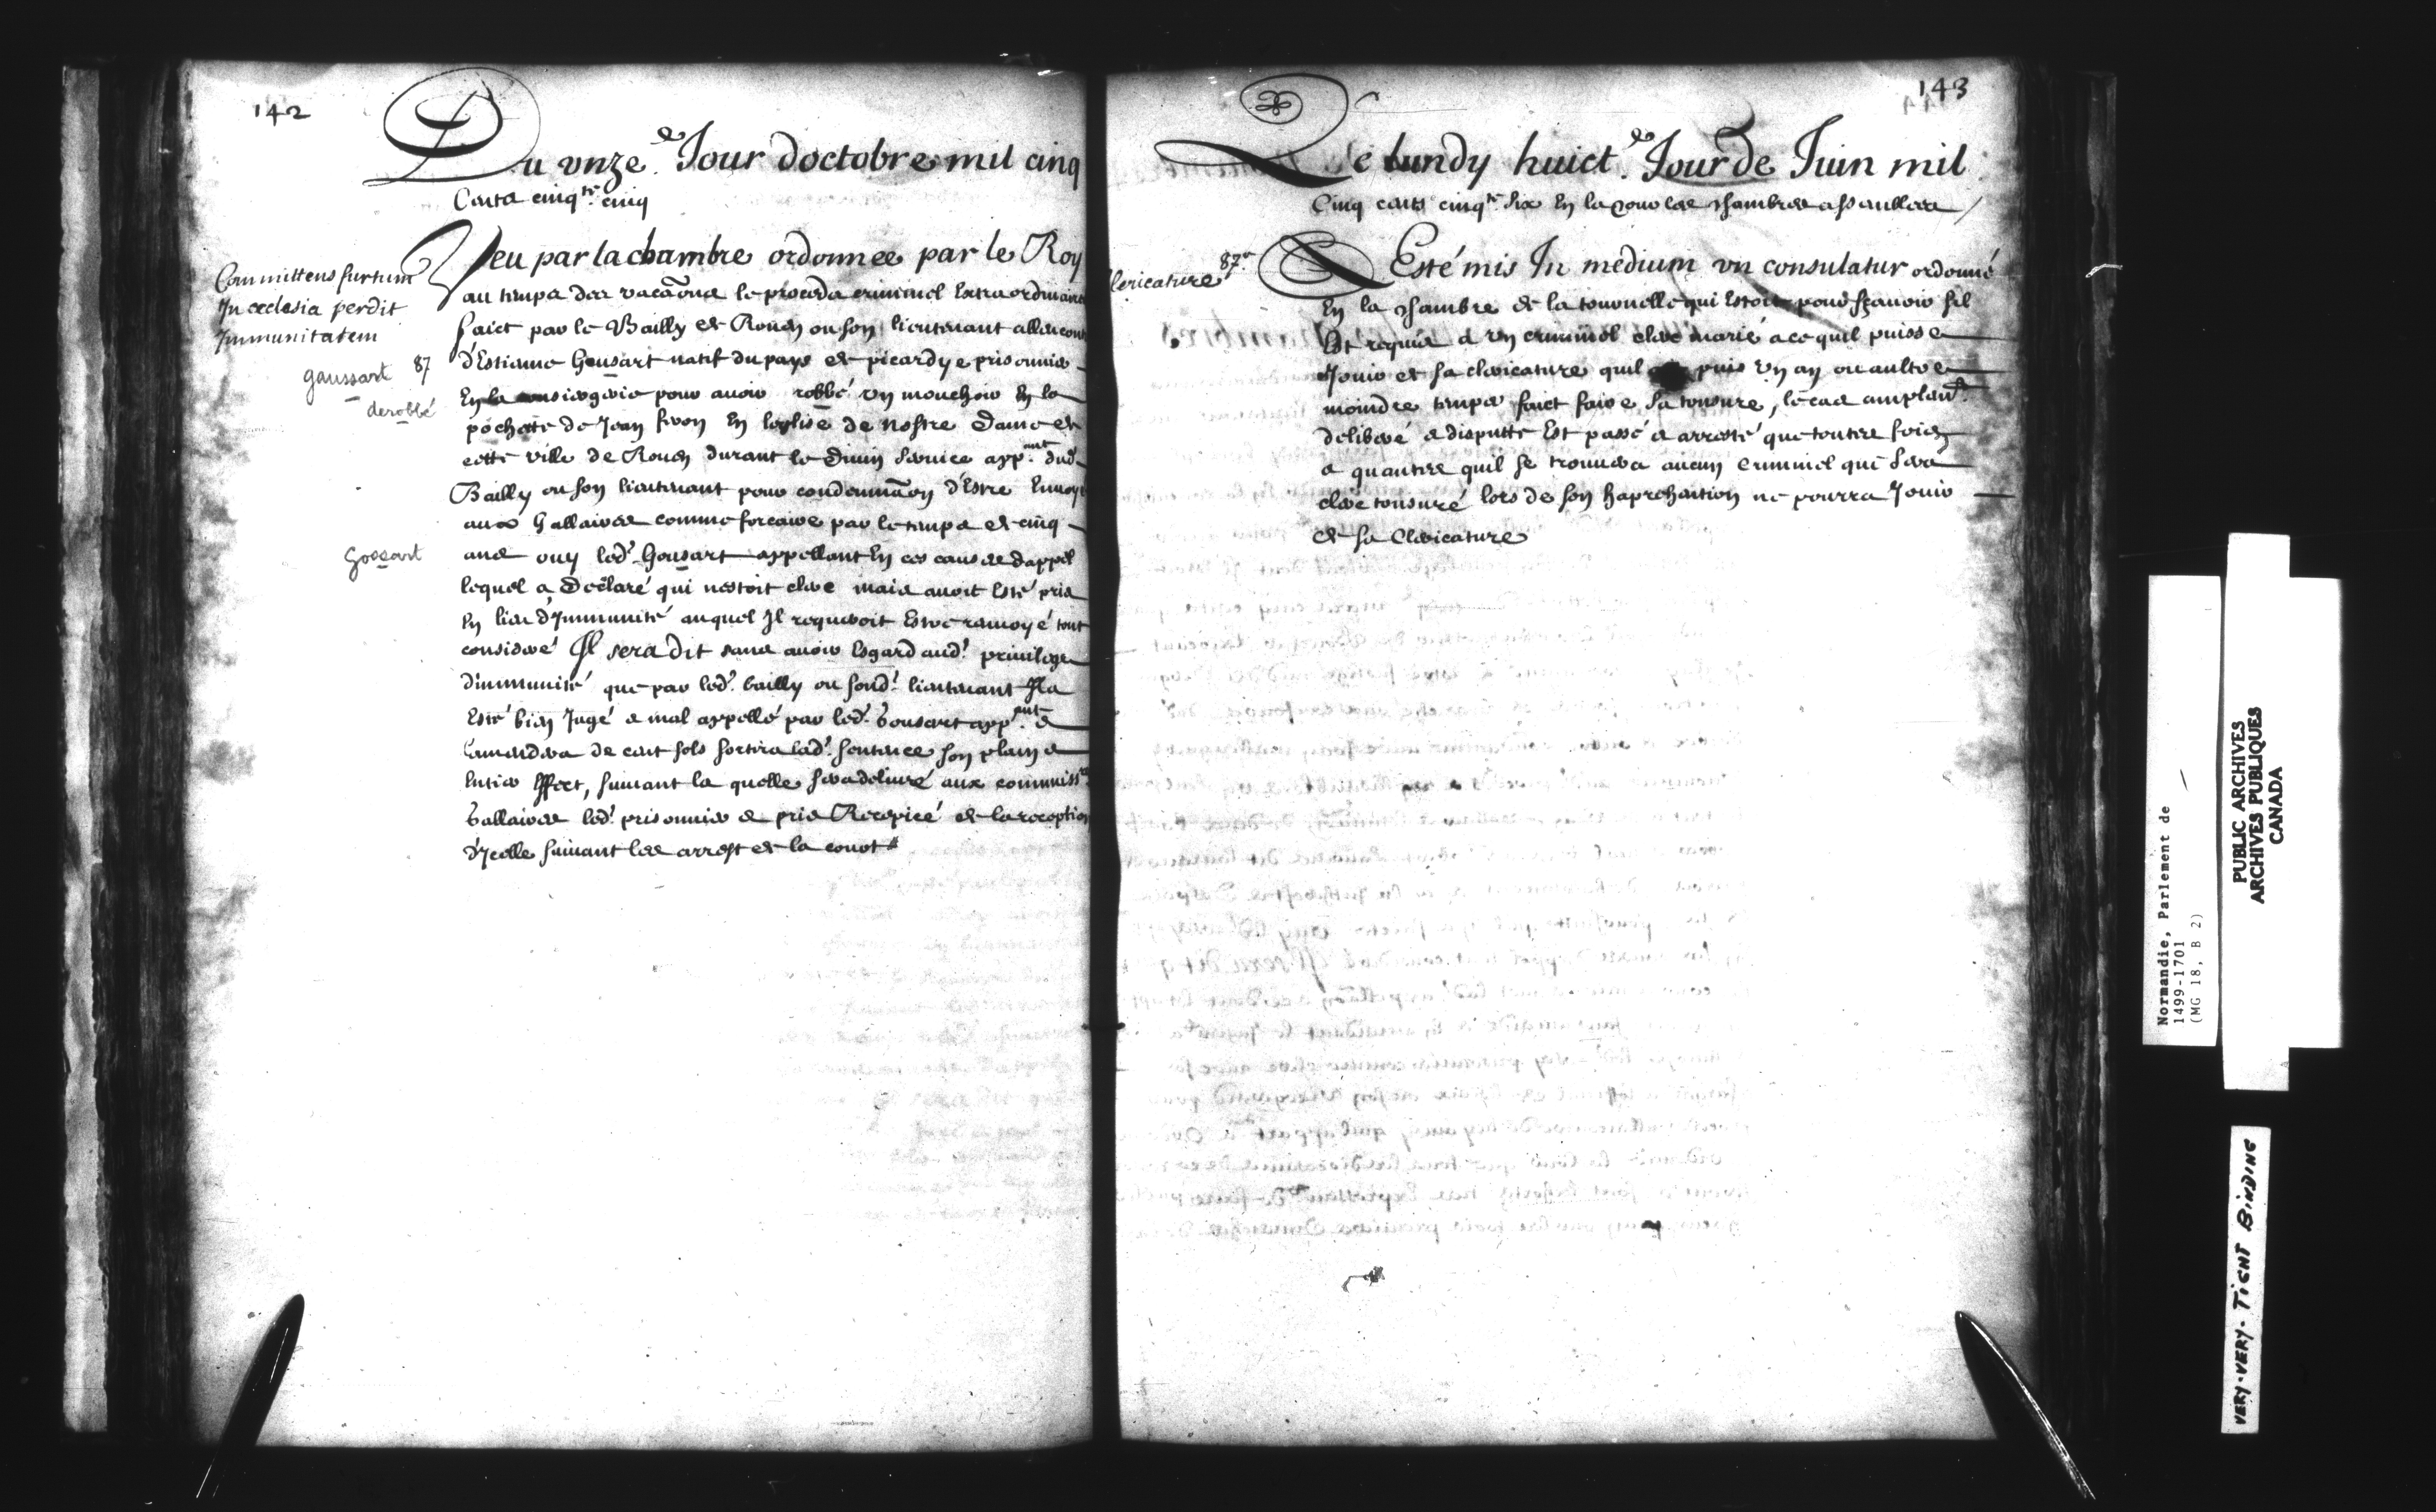 142
Du unze.e Jour doctobre mil cinq
Cents cinq.te cinq
Veu par la chambre ordonnee par le Roy
au temps des vacaons le proceds criminel Extraordinaire
faict par le Bailly de Rouen ou son lieutenant allencont
d'Estienne Goussart natif du pays de picardye prisonnier
En la consiergerie pour avoir robbé un mouchoir En la
pochette de Jean feron En leglise de nostre Dame de
cette ville de Rouen durant le Divin Service app.ant dud.
Bailly ou son lieutenant pour condemnaon d'Estre Envoyé
aux Gallaires comme forcaire par le temps de cinq
ans ouy led. Goussart appellant En ces causes dappel
lequel a Declaré qui nestoit clerc mais avoit Esté pris
En lieu d'Immunité auquel Il requeroit Estre ramoyé tout
consideré Il sera Dit sans avoir Esgard aud. privilege
dimmunité que par led. bailly ou sond. lieutenant Il a
Esté bien Jugé & mal appellé par led. Goussart app.ant &
Lamendera de cent sols sortira lad. sentence son plain &
Entier Effect, suivant la quelle sera delivré aux commiss.res
Gallaires led. prisonnier & pris Recepicé de la reception
d'Jcelle suivant les arrest de la court
Committens furtum
In ecclesia perdit
Immunitatem
87
gaussart
derobbé
Gossart
143
Le lundy huict.e Jour de Juin mil
Cinq cents cinq.te six En la cour les chambres assemblees /
Clericature 87.e
A Esté mis In medium un consulatur ordonné
En la chambre de la tournelle qui Estoit pour sçavoir sil
Est requis a un criminel clerc marié a ce quil puisse
Jouir de sa clericature quil puis un an ou aultre
moindre temps faict faire sa tonsure, le cas amplem.t
deliberé & disputté Est passé & arresté que toutes fois
& quantes quil se trouvera aucun criminel que sera
clerc tonsuré lors de son haprehention ne pourra Jouir
de sa Clericature
Normandie, Parlement de
1499-1701
(MG 18, B 2)
PUBLIC ARCHIVES
ARCHIVES PUBLIQUES
CANADA
VERY-VERY-TIGHT BINDING